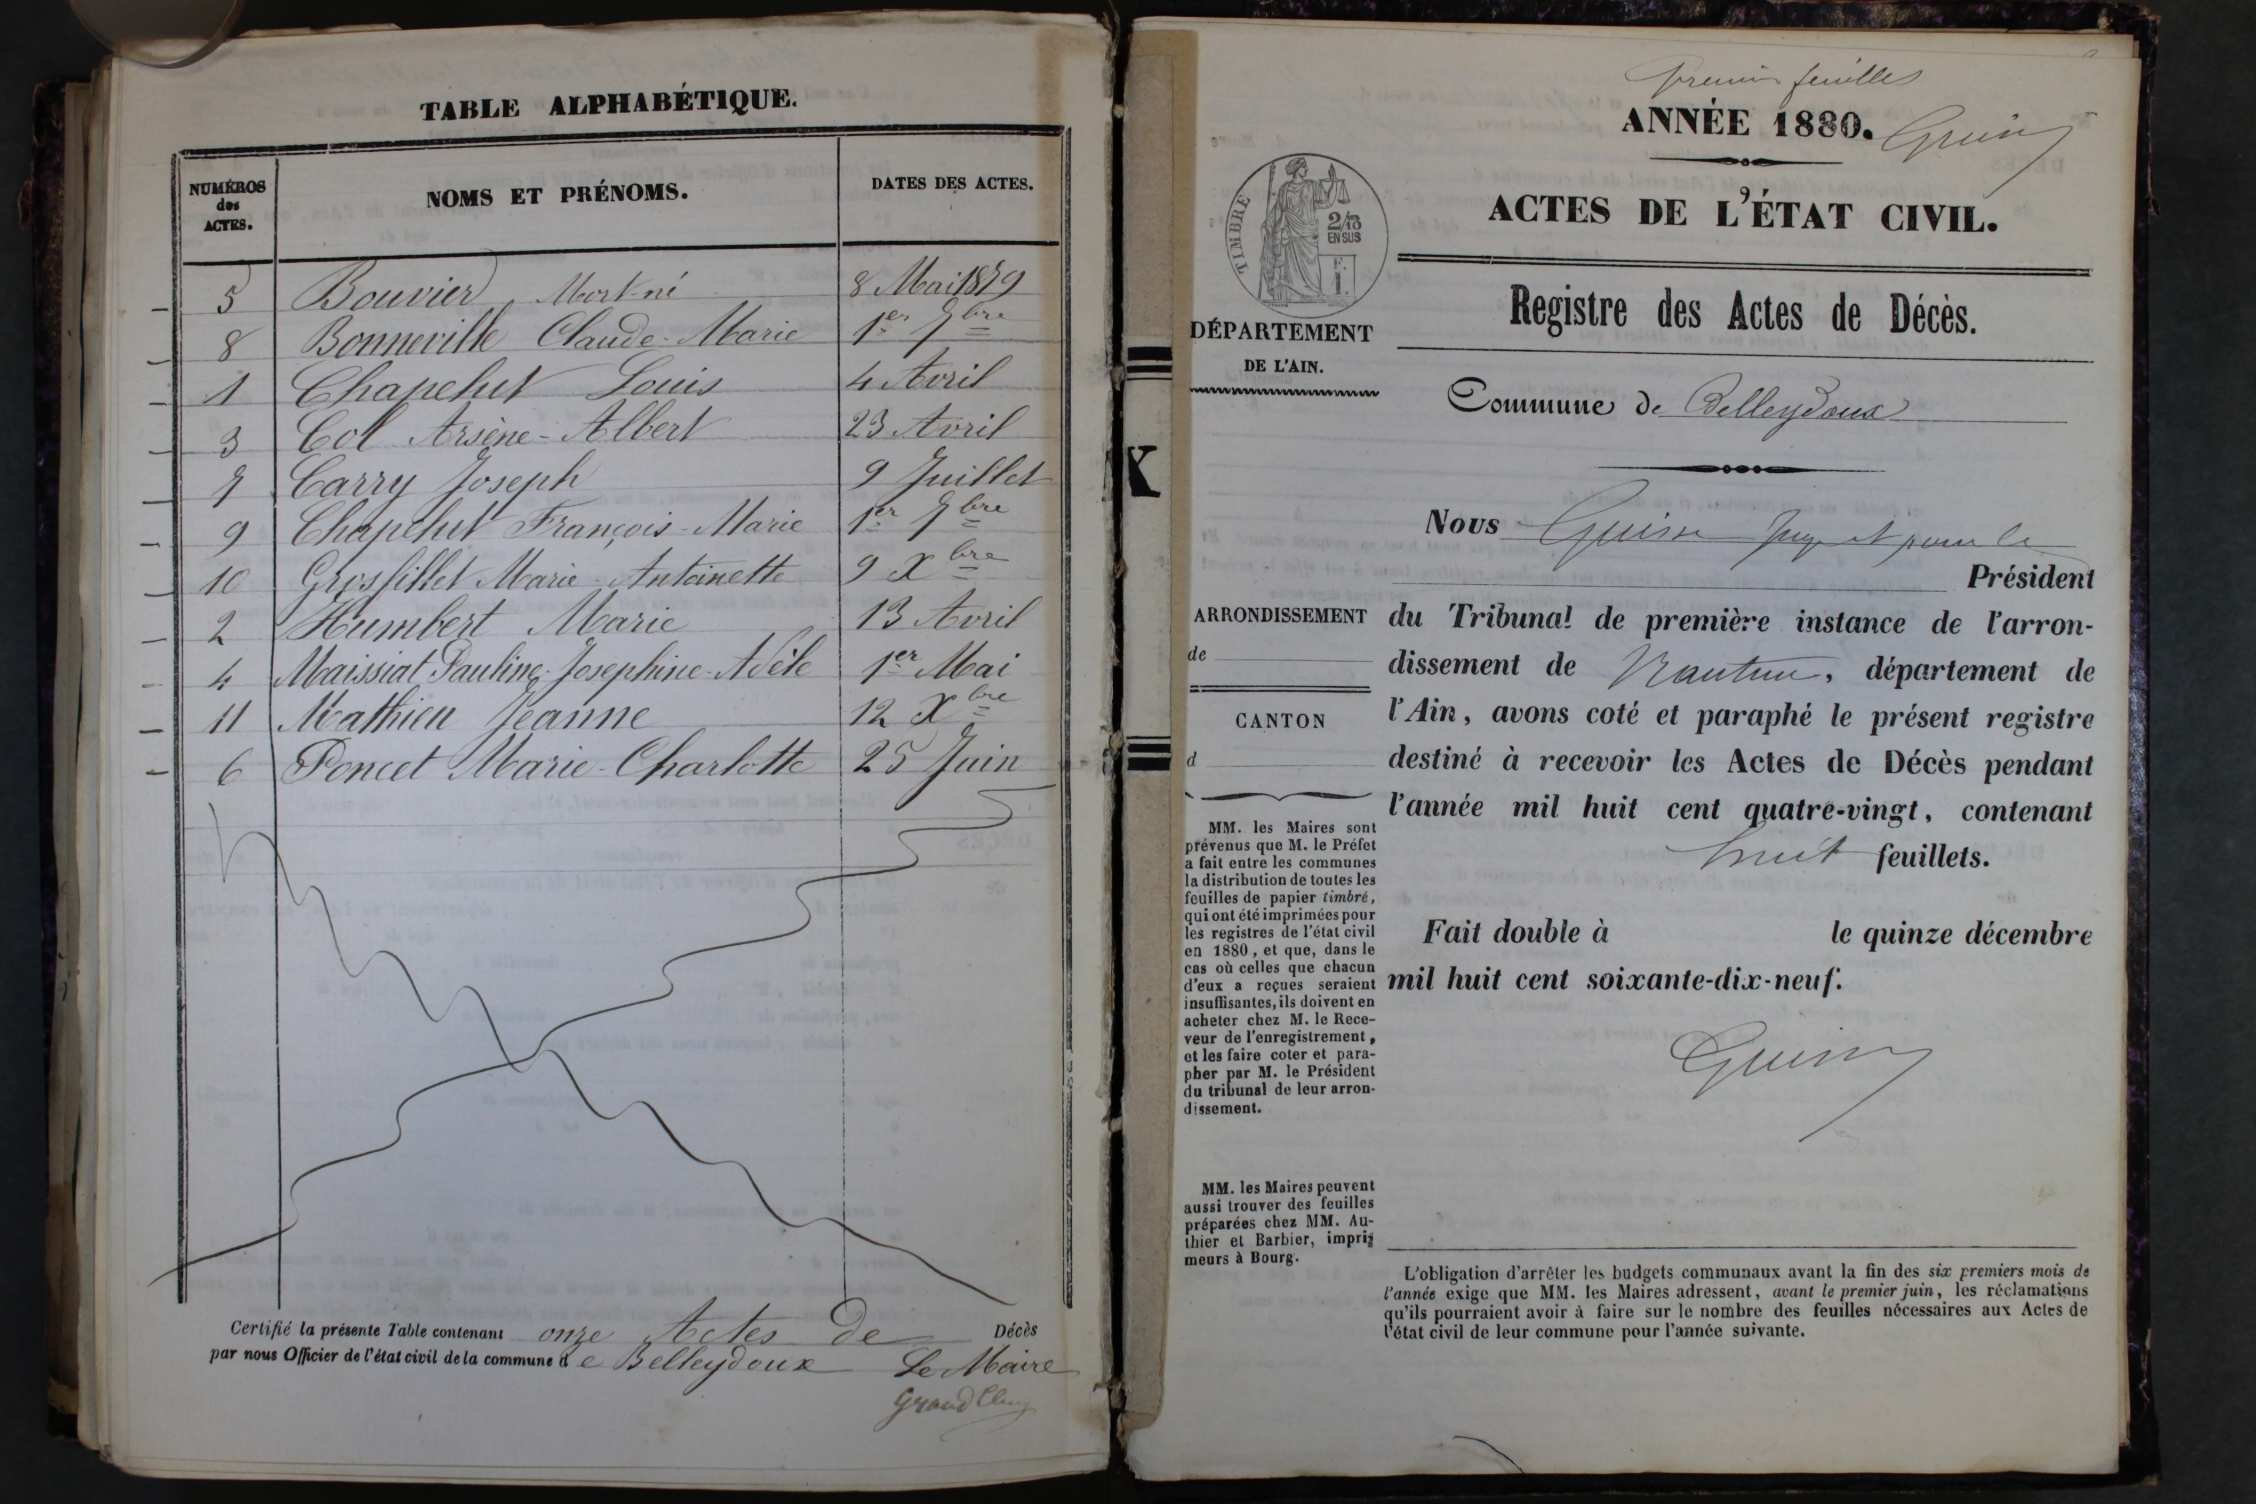 TABLE ALPHABÉTIQUE.
NUMÉROS des ACTES.
NOMS ET PRÉNOMS.
DATES DES ACTES.
5 Bouvier Mort-né 8 Mai 1879
8 Bonneville Claude-Marie 1er 7bre
1 Chapelut Louis 4 Avril
3 Col Arsène-Albert 23 Avril
7 Carry Joseph 9 Juillet
9 Chapelut François-Marie 1er 7bre
10 Grosfillet Marie-Antoinette 9 Xbre
2 Humbert Marie 13 Avril
4 Maissiat Pauline-Josephine-Adèle 1er Mai
11 Mathieu Jeanne 12 Xbre
6 Poncet Marie-Charlotte 25 Juin
Certifié la présente Table contenant onze Actes de Décès
par nous Officier de l'état civil de la commune de Belleydoux Le Maire
X
Premier feuillet
ANNÉE 1880.
ACTES DE L'ÉTAT CIVIL.
TIMBRE
2/10
EN SUS
F.
1.
Registre des Actes de Décès.
DÉPARTEMENT
DE L'AIN.
Commune de Belleydoux
Nous
Président
du Tribunal de première instance de l'arron-
dissement de Nantua, département de
l'Ain, avons coté et paraphé le présent registre
destiné à recevoir les Actes de Décès pendant
l'année mil huit cent quatre-vingt, contenant
huit feuillets.
Fait double à le quinze décembre
mil huit cent soixante-dix-neuf.
ARRONDISSEMENT
de
CANTON
d
MM. les Maires sont
prévenus que M. le Préfet
a fait entre les communes
la distribution de toutes les
feuilles de papier timbré,
qui ont été imprimées pour
les registres de l'état civil
en 1880, et que, dans le
cas où celles que chacun
d'eux a reçues seraient
insuffisantes, ils doivent en
acheter chez M. le Rece-
veur de l'enregistrement,
et les faire coter et para-
pher par M. le Président
du tribunal de leur arron-
dissement.
MM. les Maires peuvent
aussi trouver des feuilles
préparées chez MM. Au-
thier et Barbier, impri-
meurs à Bourg.
L'obligation d'arrêter les budgets communaux avant la fin des six premiers mois de
l'année exige que MM. les Maires adressent, avant le premier juin, les réclamations
qu'ils pourraient avoir à faire sur le nombre des feuilles nécessaires aux Actes de
l'état civil de leur commune pour l'année suivante.